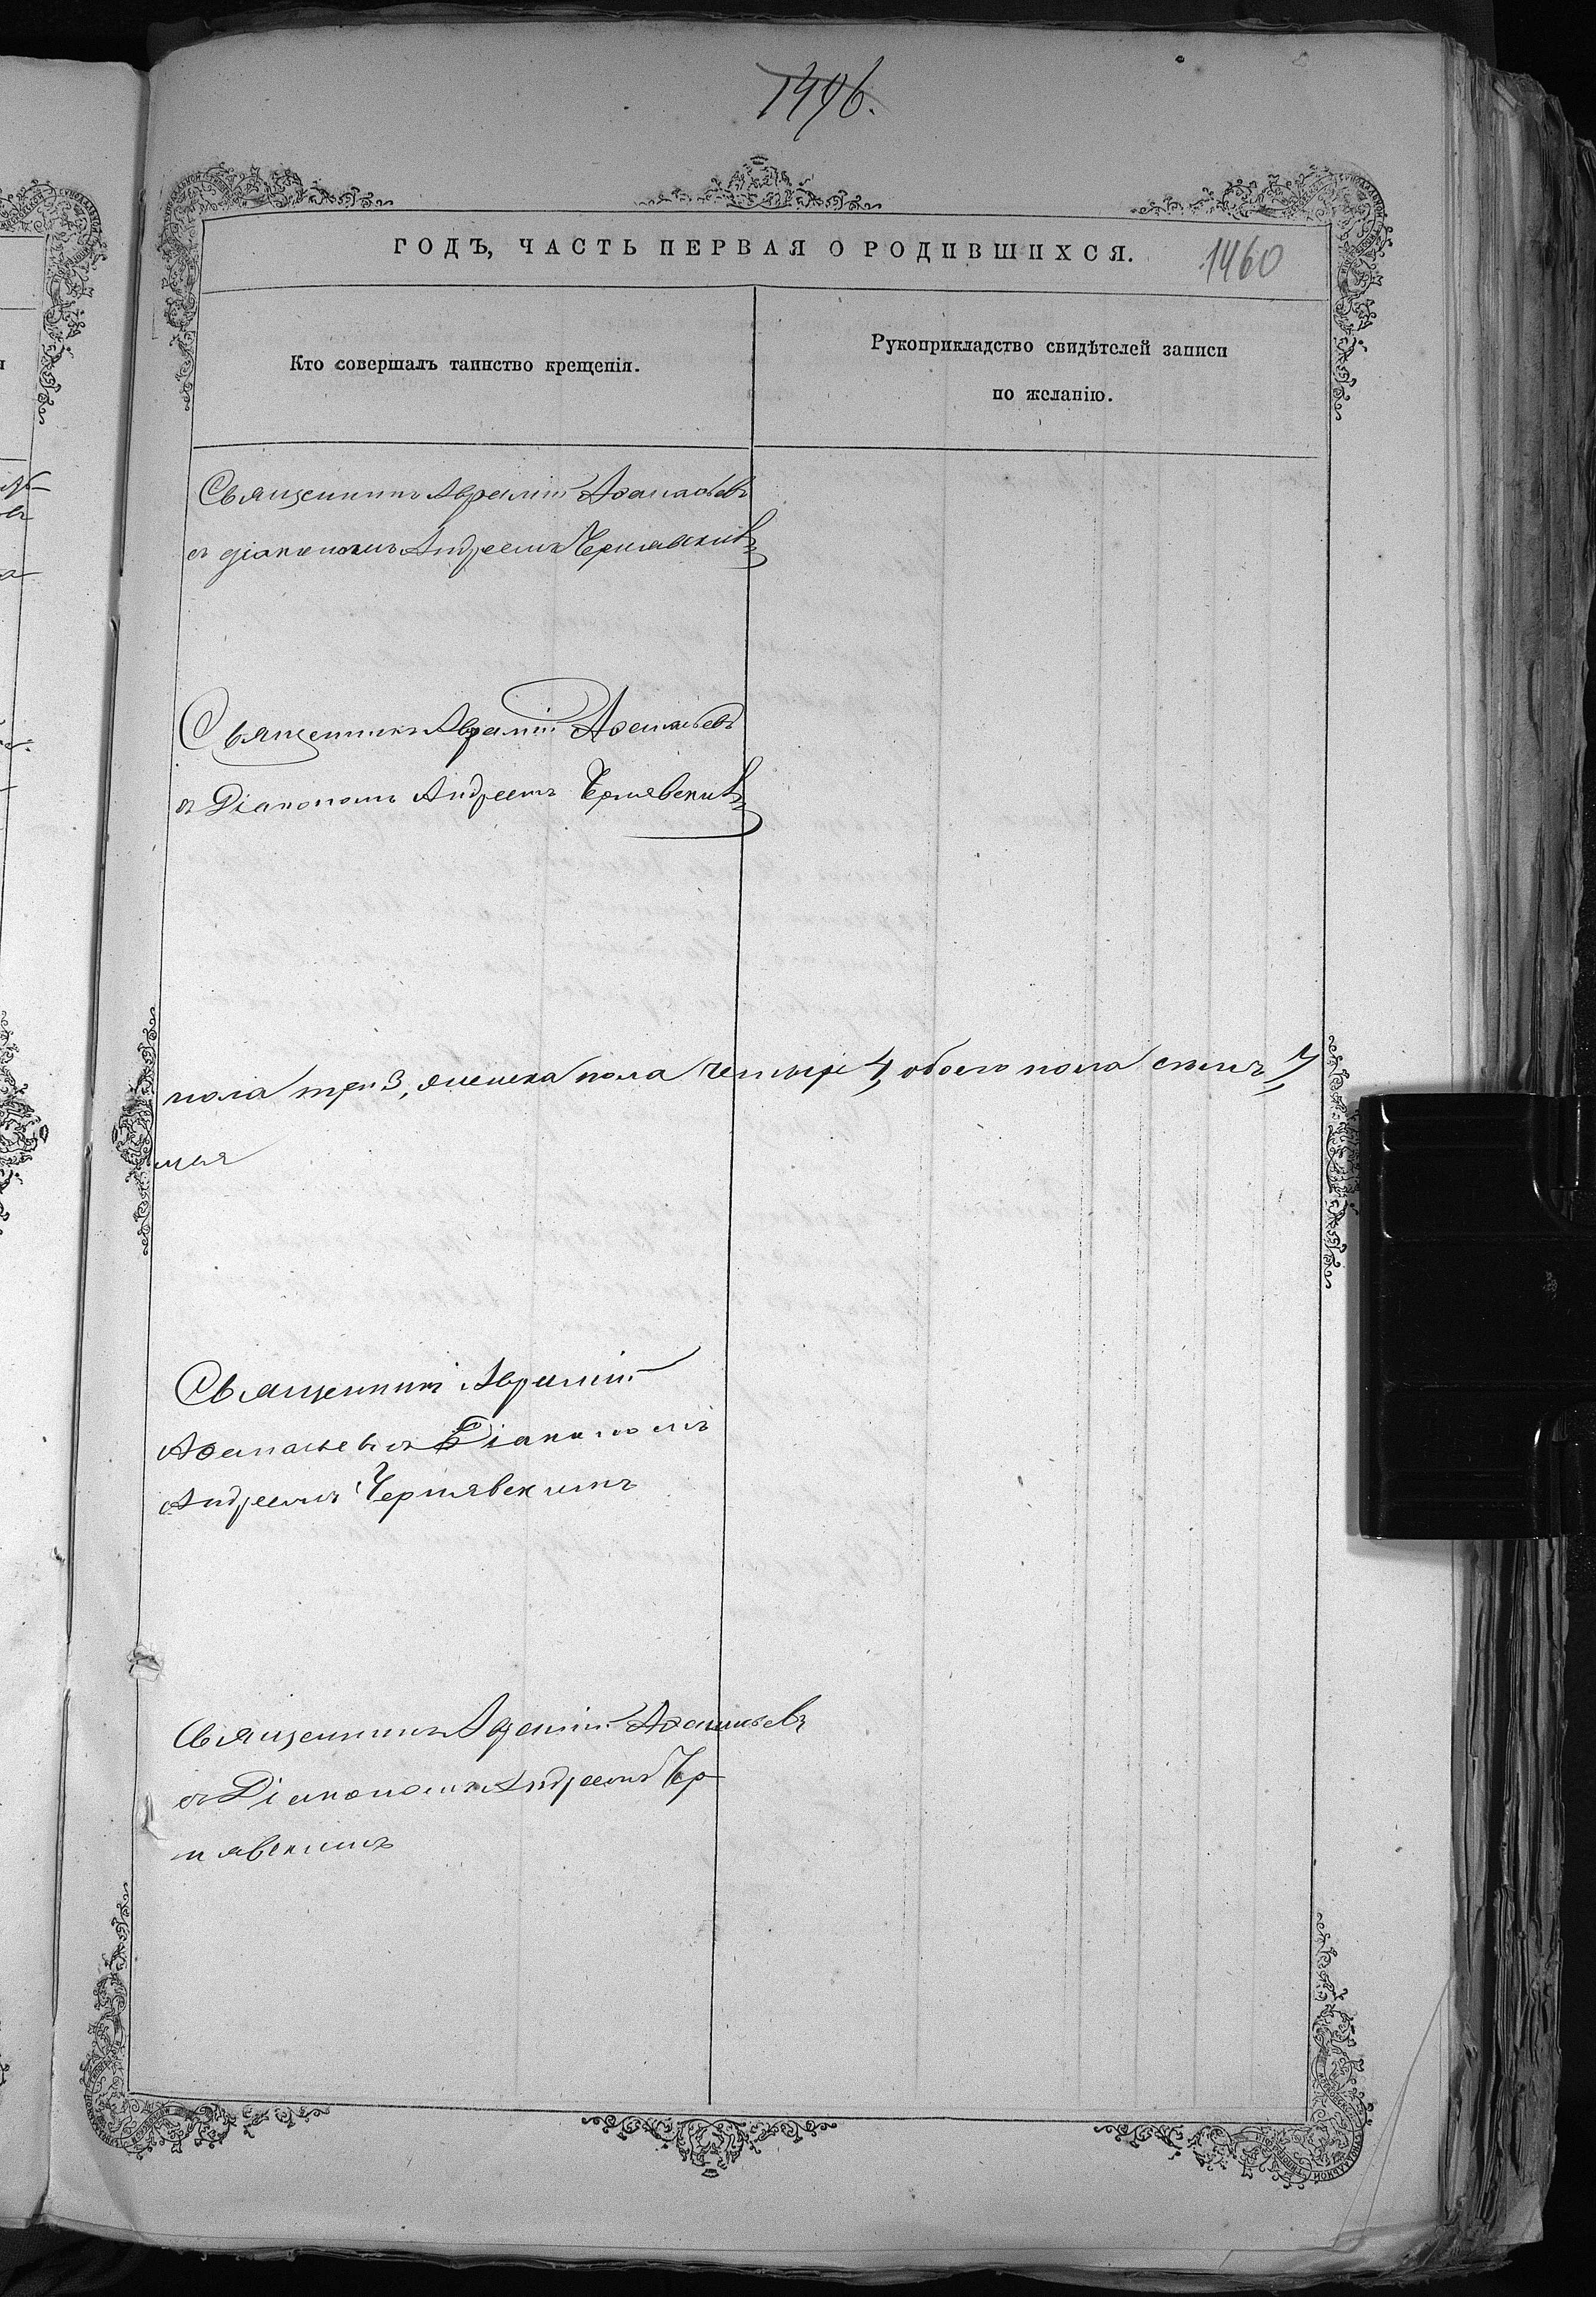 1496.
ГОДЪ, ЧАСТЬ ПЕРВАЯ О РОДИВШИХСЯ.
1460
Кто совершалъ таинство крещенія.
Рукоприкладство свидѣтелей записи
по желанію.
Священникъ Аврамій Аѳанасьевъ
съ діакономъ Андреемъ Чернявскимъ
Священникъ Аврамій Аѳанасьевъ
съ Діакономъ Андреемъ Чернявскимъ
пола три 3, женска пола четыре 4, обоего пола семь 7
мья
Священникъ Аврамій
Аѳанасьевъ съ Діакономъ
Андреемъ Чернявскимъ
Священникъ Аврамій Аѳанасьевъ
съ Діакономъ Андреемъ Чер
нявскимъ